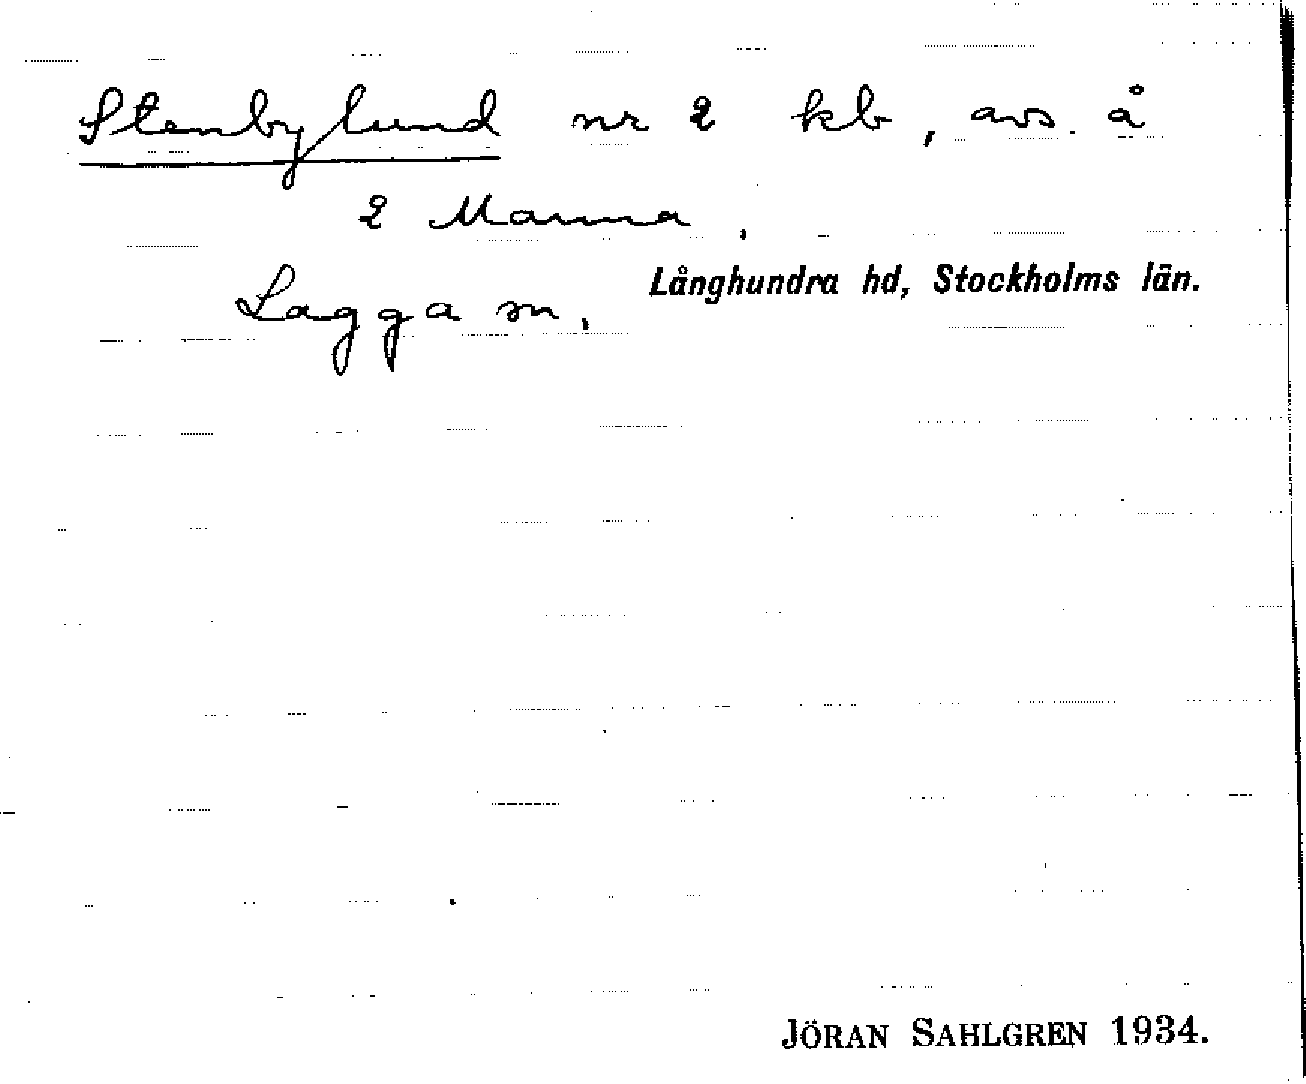 Stenbylund nr 2 kb, avs. å
2 Manna,
Lagga sn,
Långhundra hd, Stockholms län.
JÖRAN SAHLGREN 1934.